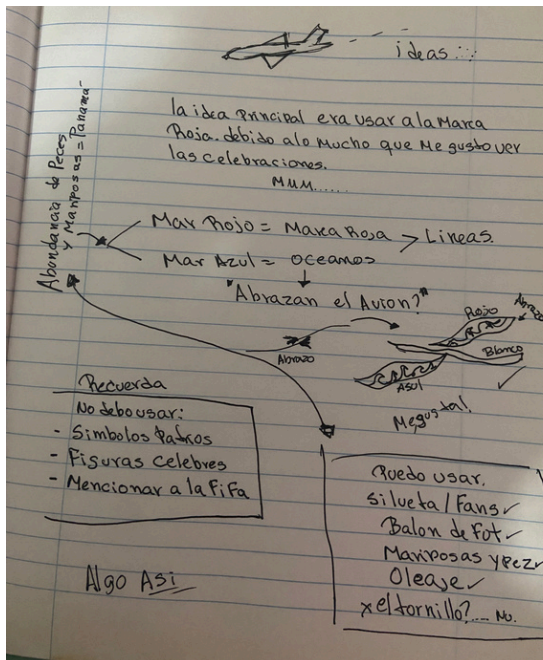 ideas...
la idea Principal era usar a la Marea
Roja. debido alo Mucho que Me gusto ver
las celebraciones.
MUM......
Abundancia de Peces
y Mariposas = Panamá
Mar Rojo = Marea Roja > Lineas.
Mar Azul = oceanos
"Abrazan el Avion?"
Rojo
Abrazo
Blanco
Abrazo
Asul
Me gusta!
Recuerda
No debo usar:
- Simbolos Patrios
- Figuras Celebres
- Mencionar a la FiFa
Puedo usar.
Silueta / Fans ✓
Balon de Fot ✓
Mariposas y Pez ✓
Oleaje ✓
x el tornillo?.... No.
Algo Asi